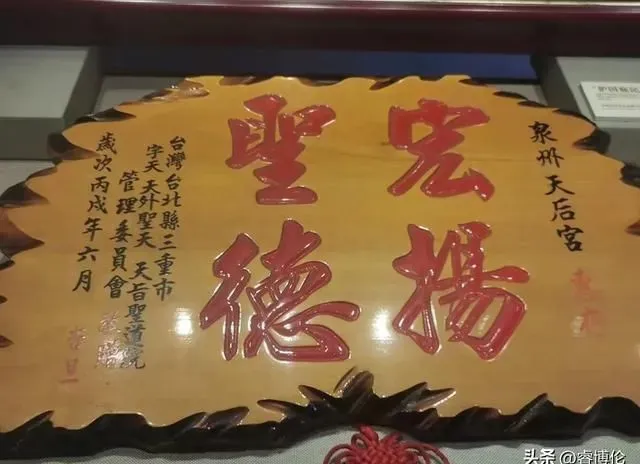 泉州天后宮
宏揚
聖德
台灣台北縣三重市
字天 天外聖天 天旨聖道院
管理委員會 敬贈
歲次丙戌年六月 吉旦
头条 @睿博伦